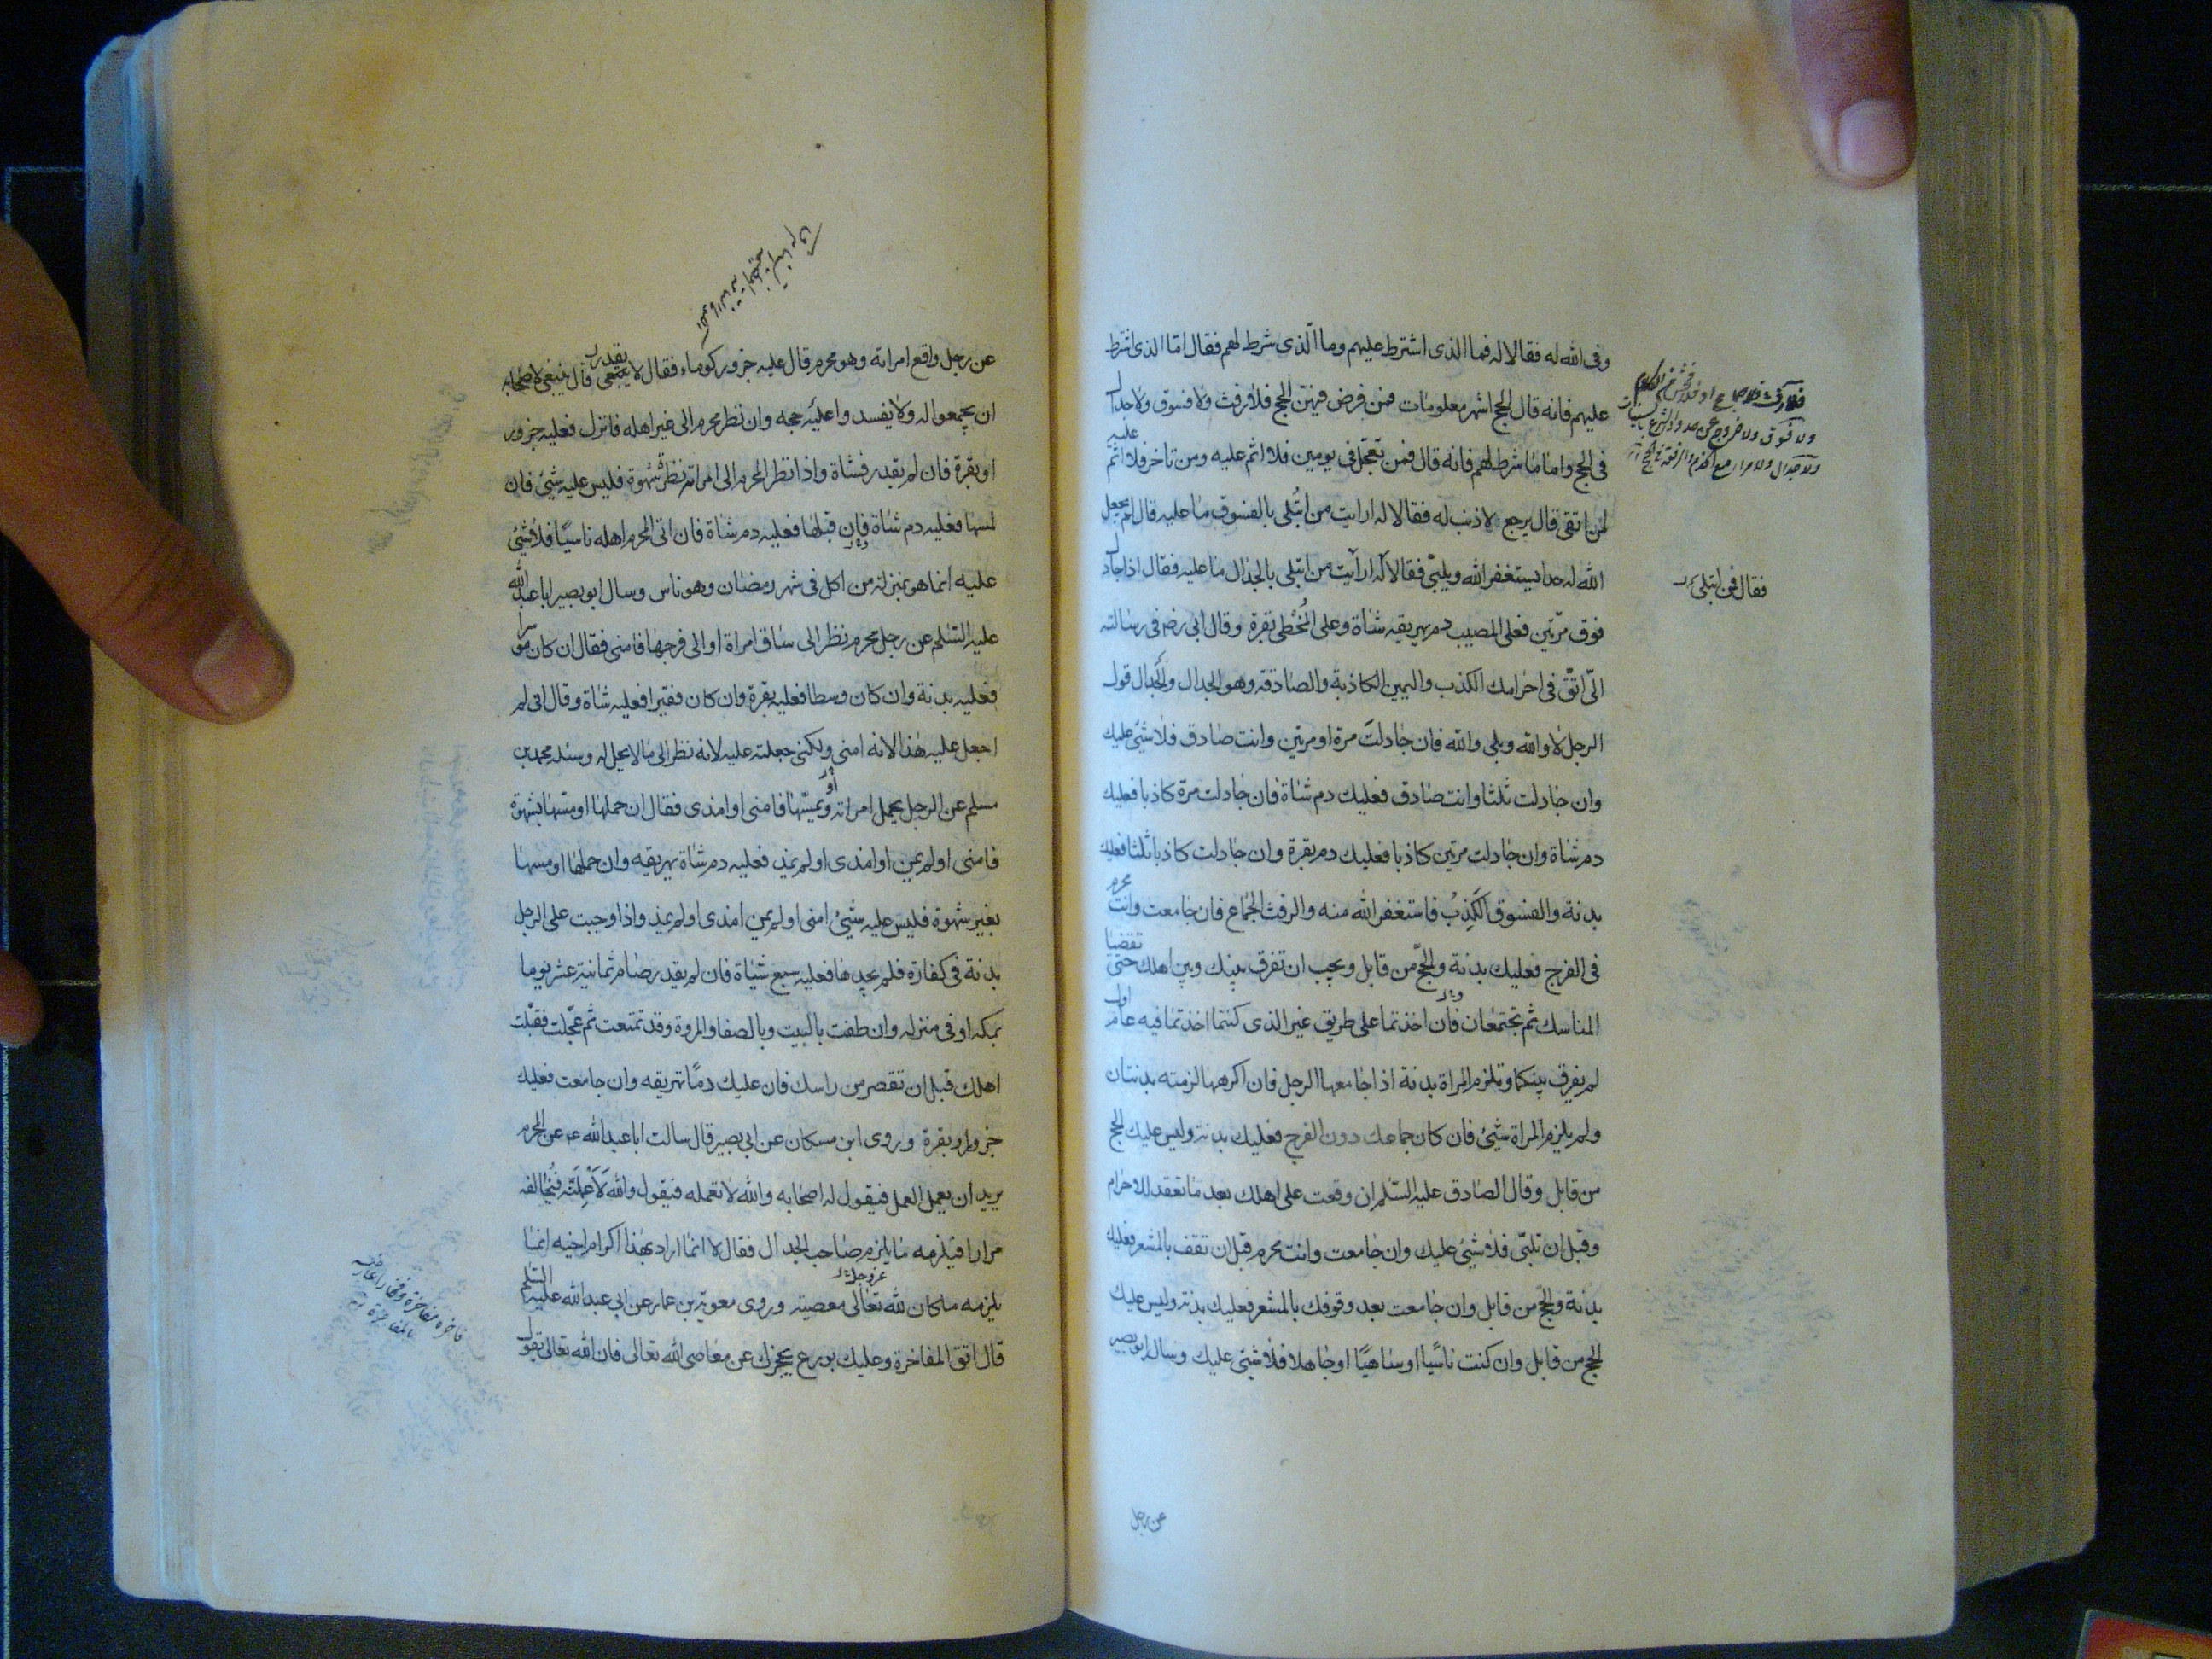 وفى الله له فقالا له فما الذى اشترط عليهم وما الّذى شرط لهم فقال امّا الذى اشترط
عليهم فانه قال الحج اشهر معلومات فمن فرض فيهن الحج فلا رفث ولا فسوق ولا جدال
فى الحج واما ما شرط لهم فانه قال فمن تعجّل فى يومين فلا اثم عليه ومن تاخر فلا اثم عليه
لمن اتقى قال يرجع لا ذنب له فقالا له ارايت من ابتُلى بالفسوق ما عليه قال لم يجعل
الله له حدا يستغفر الله ويلبّى فقالا له ارأيت من ابتلى بالجدال ما عليه فقال اذا جادل
فوق مرّتين فعلى المصيب دم يهريقه شاة وعلى المُخطى بقرة وقال ابى رض فى رسالته
الىّ اتّق فى احرامك الكذب واليمين الكاذبة والصادقة وهو الجدال والجدال قول
الرجل لا والله وبلى والله فان جادلتَ مرة او مرتين وانت صادق فلا شئ عليك
وان جادلت ثلثا وانت صادق فعليك دم شاة فان جادلت مرة كاذبا فعليك
دم شاة وان جادلت مرتين كاذبا فعليك دم بقرة وان جادلت كاذبا ثلثا فعليك
بدنة والفسوق الكَذِبُ فاستغفر الله منه والرفث الجماع فان جامعت وانت محرم
فى الفرج فعليك بدنة والحجّ من قابل ويجب ان تفرق بينك وبين اهلك حتى تقضيا
المناسك ثم تجتمعان فان اخذتما على طريق غير الذى كنتما اخذتما فيه عام اول
لم يفرق بينكما وتلزم المراة بدنة اذا جامعها الرجل فان اكرهها لزمته بدنتان
ولم يلزم المراة شئ فان كان جماعك دون الفرج فعليك بدنة وليس عليك الحج
من قابل وقال الصادق عليه السّلم ان وقعت على اهلك بعد ما تعقد الاحرام
وقبل ان تلبّى فلا شئ عليك وان جامعت وانت محرم قبل ان تقف بالمشعر فعليك
بدنة والحج من قابل وان جامعت بعد وقوفك بالمشعر فعليك بدنة وليس عليك
الحج من قابل وان كنت ناسيًا او ساهيًا او جاهلا فلا شئ عليك وسال ابو بصير
فقال فمن ابتلى
عن رجل
عن رجل واقع امراته وهو محرم قال عليه جزور كوماء فقال لا يقدر قال ينبغى لاصحابه
ان يجمعوا له ولا يفسدوا عليه حجه وان نظر محرم الى غير اهله فانزل فعليه جزور
او بقرة فان لم يقدر فشاة واذا نظر المحرم الى امراته نظر شهوة فليس عليه شئ فان
لمسها فعليه دم شاة فان قبّلها فعليه دم شاة فان اتى المحرم اهله ناسيًا فلا شئ
عليه انما هو بمنزلة من اكل فى شهر رمضان وهو ناس وسال ابو بصير ابا عبد الله
عليه السّلم عن رجل محرم نظر الى ساق امراة او الى فرجها فامنى فقال ان كان موسرا
فعليه بدنة وان كان وسطا فعليه بقرة وان كان فقيرا فعليه شاة وقال انى لم
اجعل عليه هذا لانه امنى ولكنى جعلته عليه لانه نظر الى ما لا يحل له وسئله محمد بن
مسلم عن الرجل يحمل امراته او يمسّها فامنى او امذى فقال ان حملها او مسّها بشهوة
فامنى او لم يمن او امذى او لم يمذ فعليه دم شاة يهريقه وان حملها او مسها
بغير شهوة فليس عليه شئ امنى او لم يمن امذى او لم يمذ واذا وجبت على الرجل
بدنة فى كفارة فلم يجدها فعليه سبع شياة فان لم يقدر صام ثمانية عشر يوما
بمكة او فى منزله وان طفت بالبيت وبالصفا والمروة وقد تمتعت ثم عجّلت فقبّلت
اهلك قبل ان تقصر من راسك فان عليك دمًا تهريقه وان جامعت فعليك
جزور او بقرة وروى ابن مسكان عن ابى بصير قال سالت ابا عبد الله ع عن المحرم
يريد ان يعمل العمل فيقول له اصحابه والله لا تعمله فيقول والله لَاَعْمَلَنّه فيُخالفه
مرارا فيلزمه ما يلزم صاحب الجدال فقال لا انما اراد بهذا اكرام اخيه انما
يلزمه ما كان لله عز وجل تعالى معصية وروى معوية بن عمار عن ابى عبد الله عليه السّلم
قال اتق المفاخرة وعليك بورع يحجزك عن معاصى الله تعالى فان الله تعالى يقول